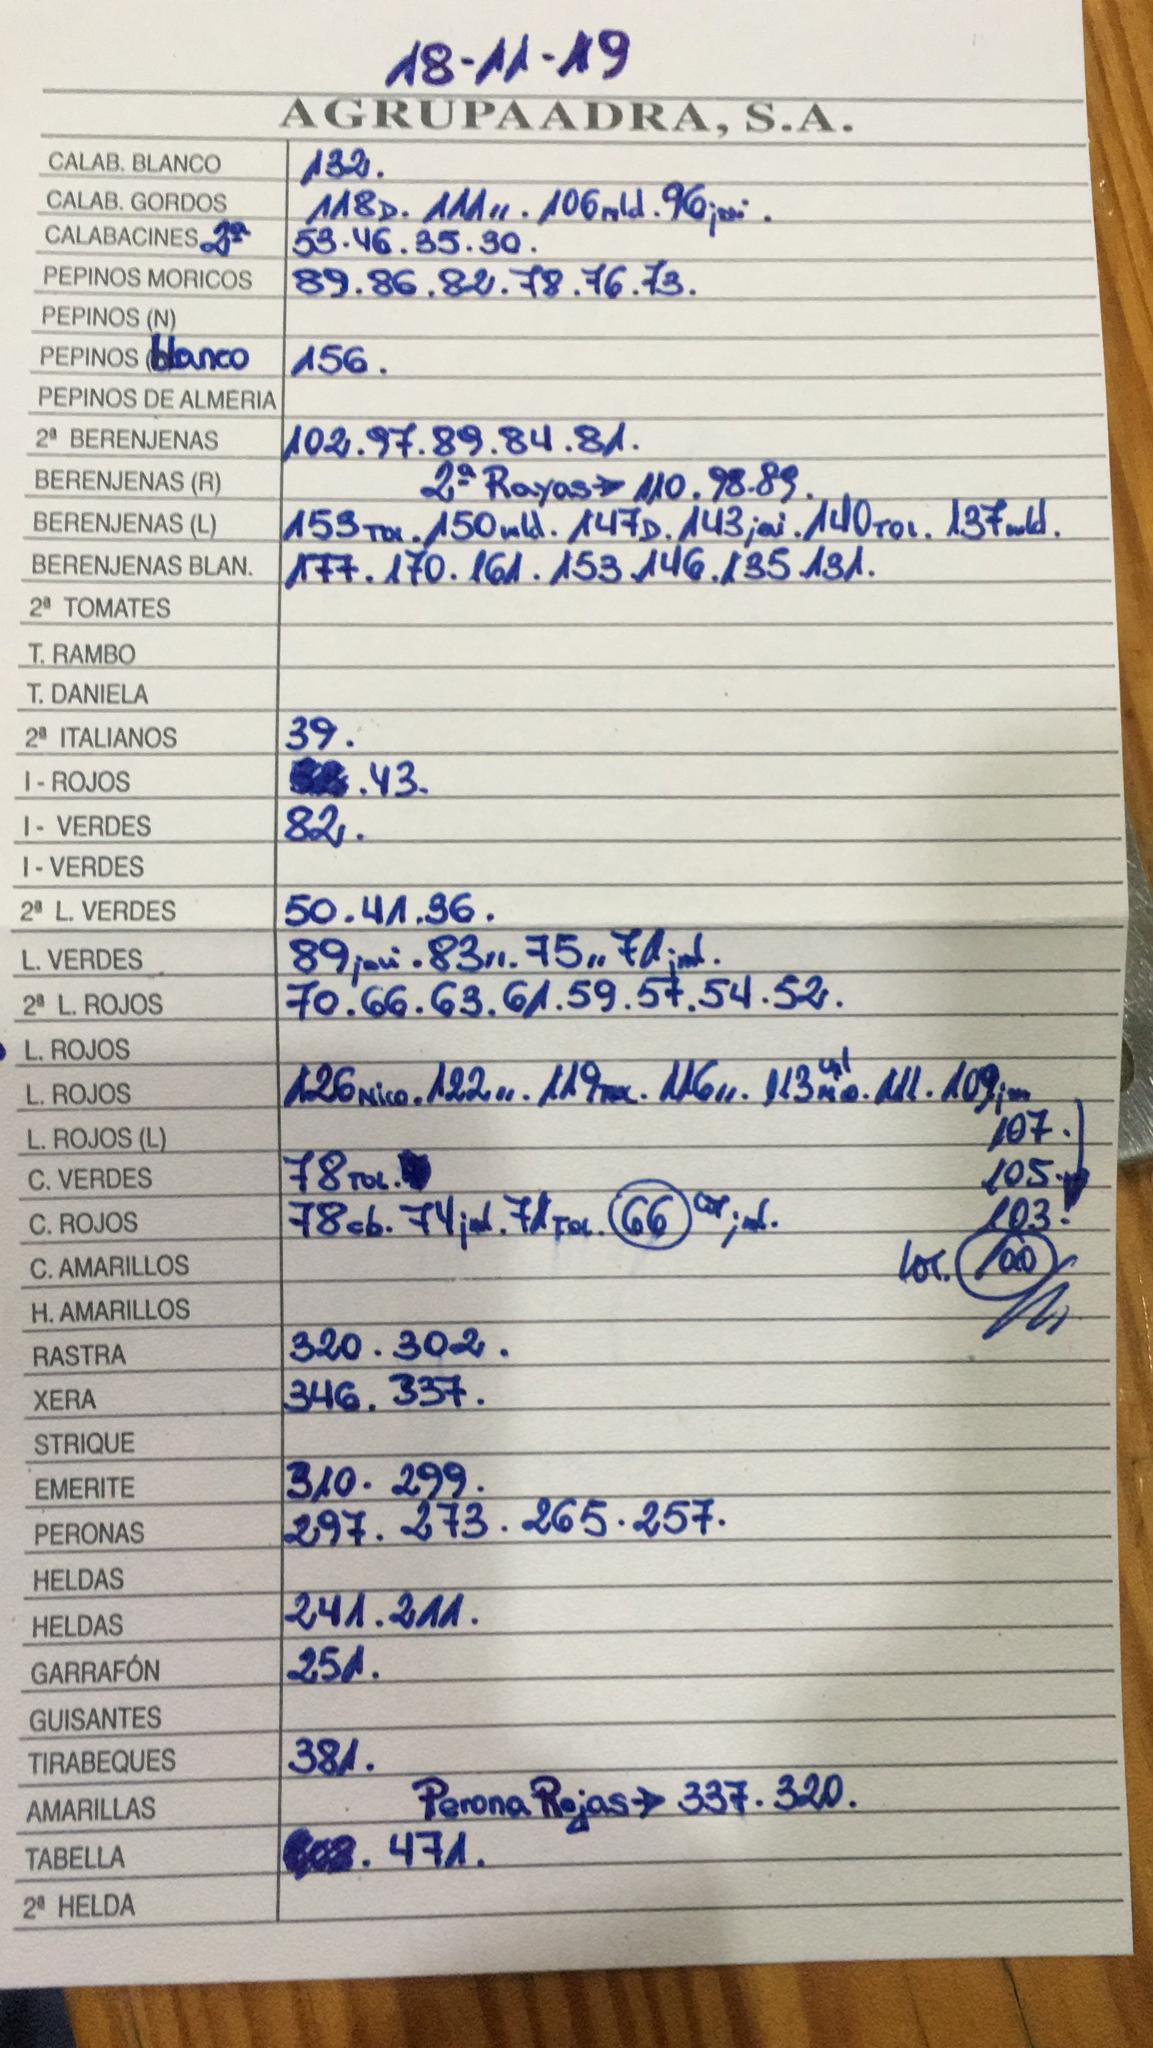 18-11-19
AGRUPAADRA, S.A.
CALAB. BLANCO 132.
CALAB. GORDOS 118D. 111,,. 106mld. 96javi.
CALABACINES 2ª 53.46.35.30.
PEPINOS MORICOS 89.86.82.78.76.73.
PEPINOS (N)
PEPINOS blanco 156.
PEPINOS DE ALMERIA
2ª BERENJENAS 102.97.89.84.81.
BERENJENAS (R) 2ª Rayas→110.98.89.
BERENJENAS (L) 153TOR.150mld.147D.143javi.140TOR.137mld.
BERENJENAS BLAN. 177.170.161.153.146.135.131.
2ª TOMATES
T. RAMBO
T. DANIELA
2ª ITALIANOS 39.
I - ROJOS .43.
I - VERDES 82.
I - VERDES
2ª L. VERDES 50.41.36.
L. VERDES 89javi.83,,.75,,71jml.
2ª L. ROJOS 70.66.63.61.59.57.54.52.
L. ROJOS
L. ROJOS 126Nico.122,,.119.116,,.113.111.109jm
L. ROJOS (L) 107.
C. VERDES 78TOR. 105.
C. ROJOS 78cb.74jml.71TOR.66 COR jml. 103.
C. AMARILLOS COR. 100
H. AMARILLOS
RASTRA 320.302.
XERA 346.337.
STRIQUE
EMERITE 310.299.
PERONAS 297.273.265.257.
HELDAS
HELDAS 241.211.
GARRAFÓN 251.
GUISANTES
TIRABEQUES 381.
AMARILLAS Perona Rojas→337.320.
TABELLA .471.
2ª HELDA